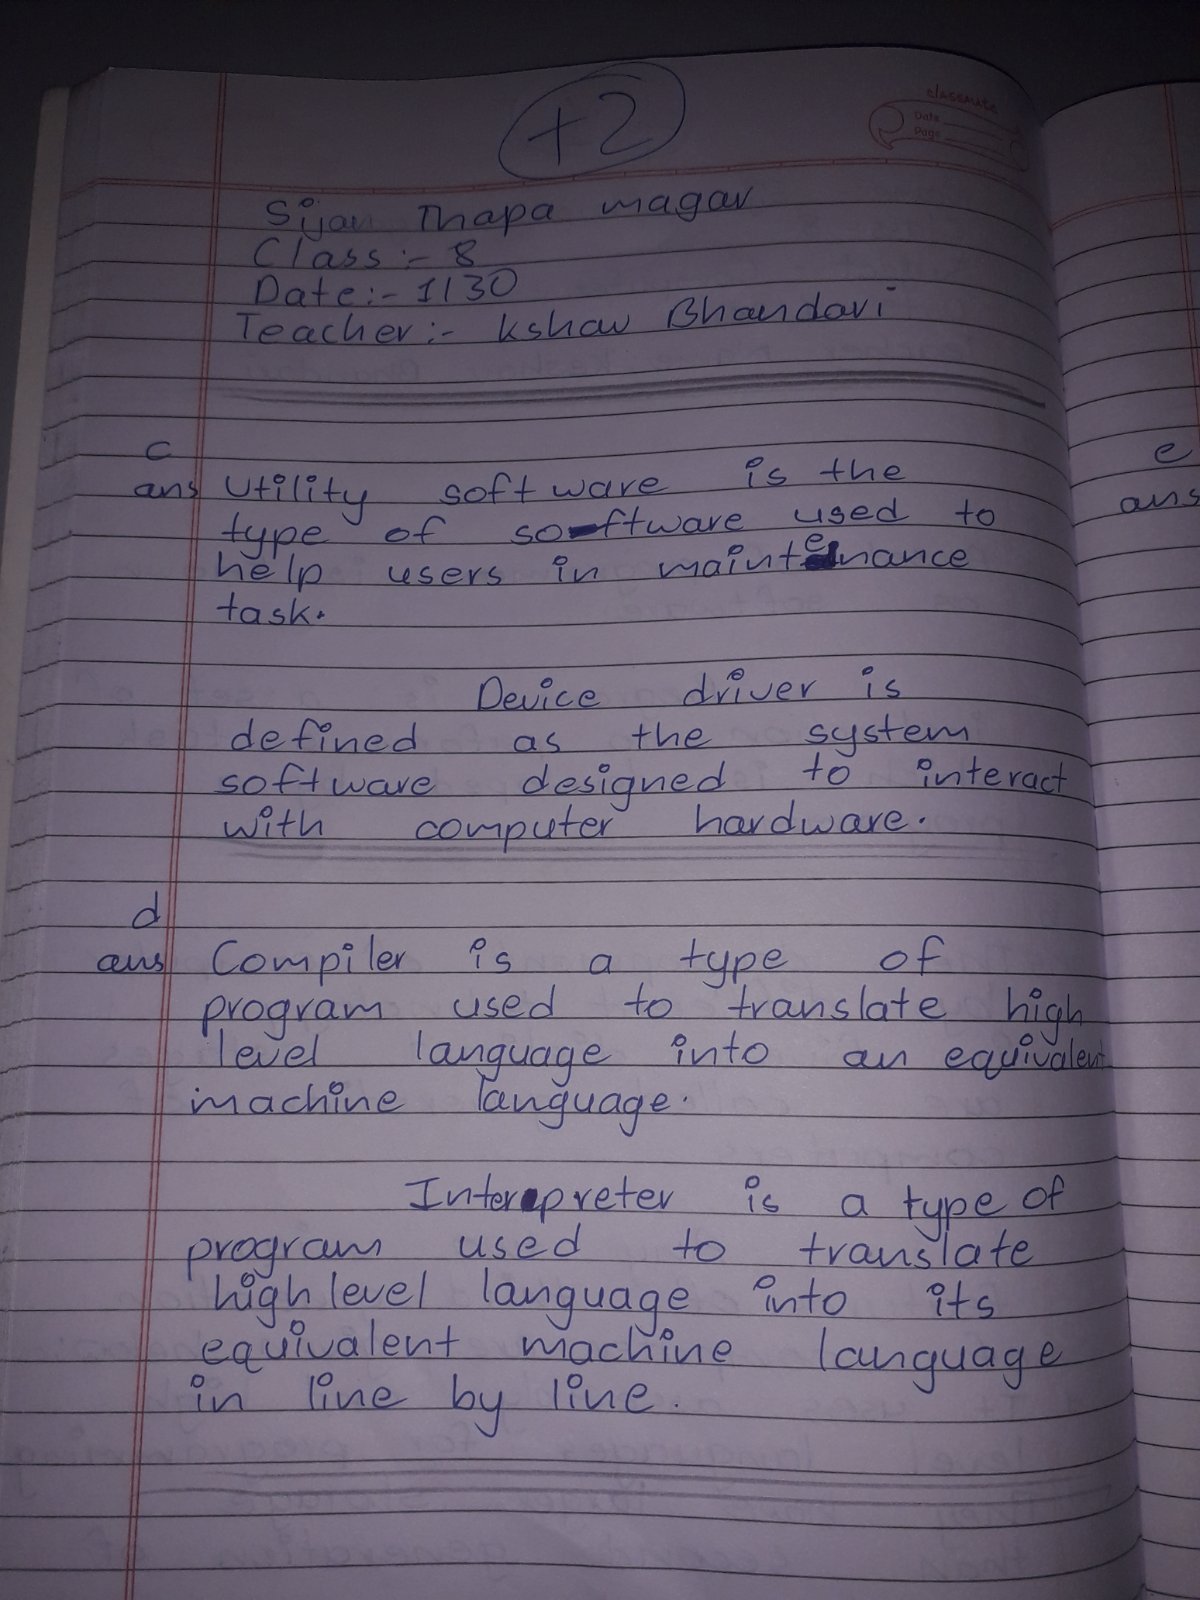 +2
classmate
Date
Page
Sijan Thapa magar
Class :- 8
Date :- 1130
Teacher :- Kshav Bhandari
c
ans Utility software is the
type of software used to
help users in maintenance
task.
Device driver is
defined as the system
software designed to interact
with computer hardware.
d
ans Compiler is a type of
program used to translate high
level language into an equivalent
machine language.
Interpreter is a type of
program used to translate
high level language into its
equivalent machine language
in line by line.
e
ans